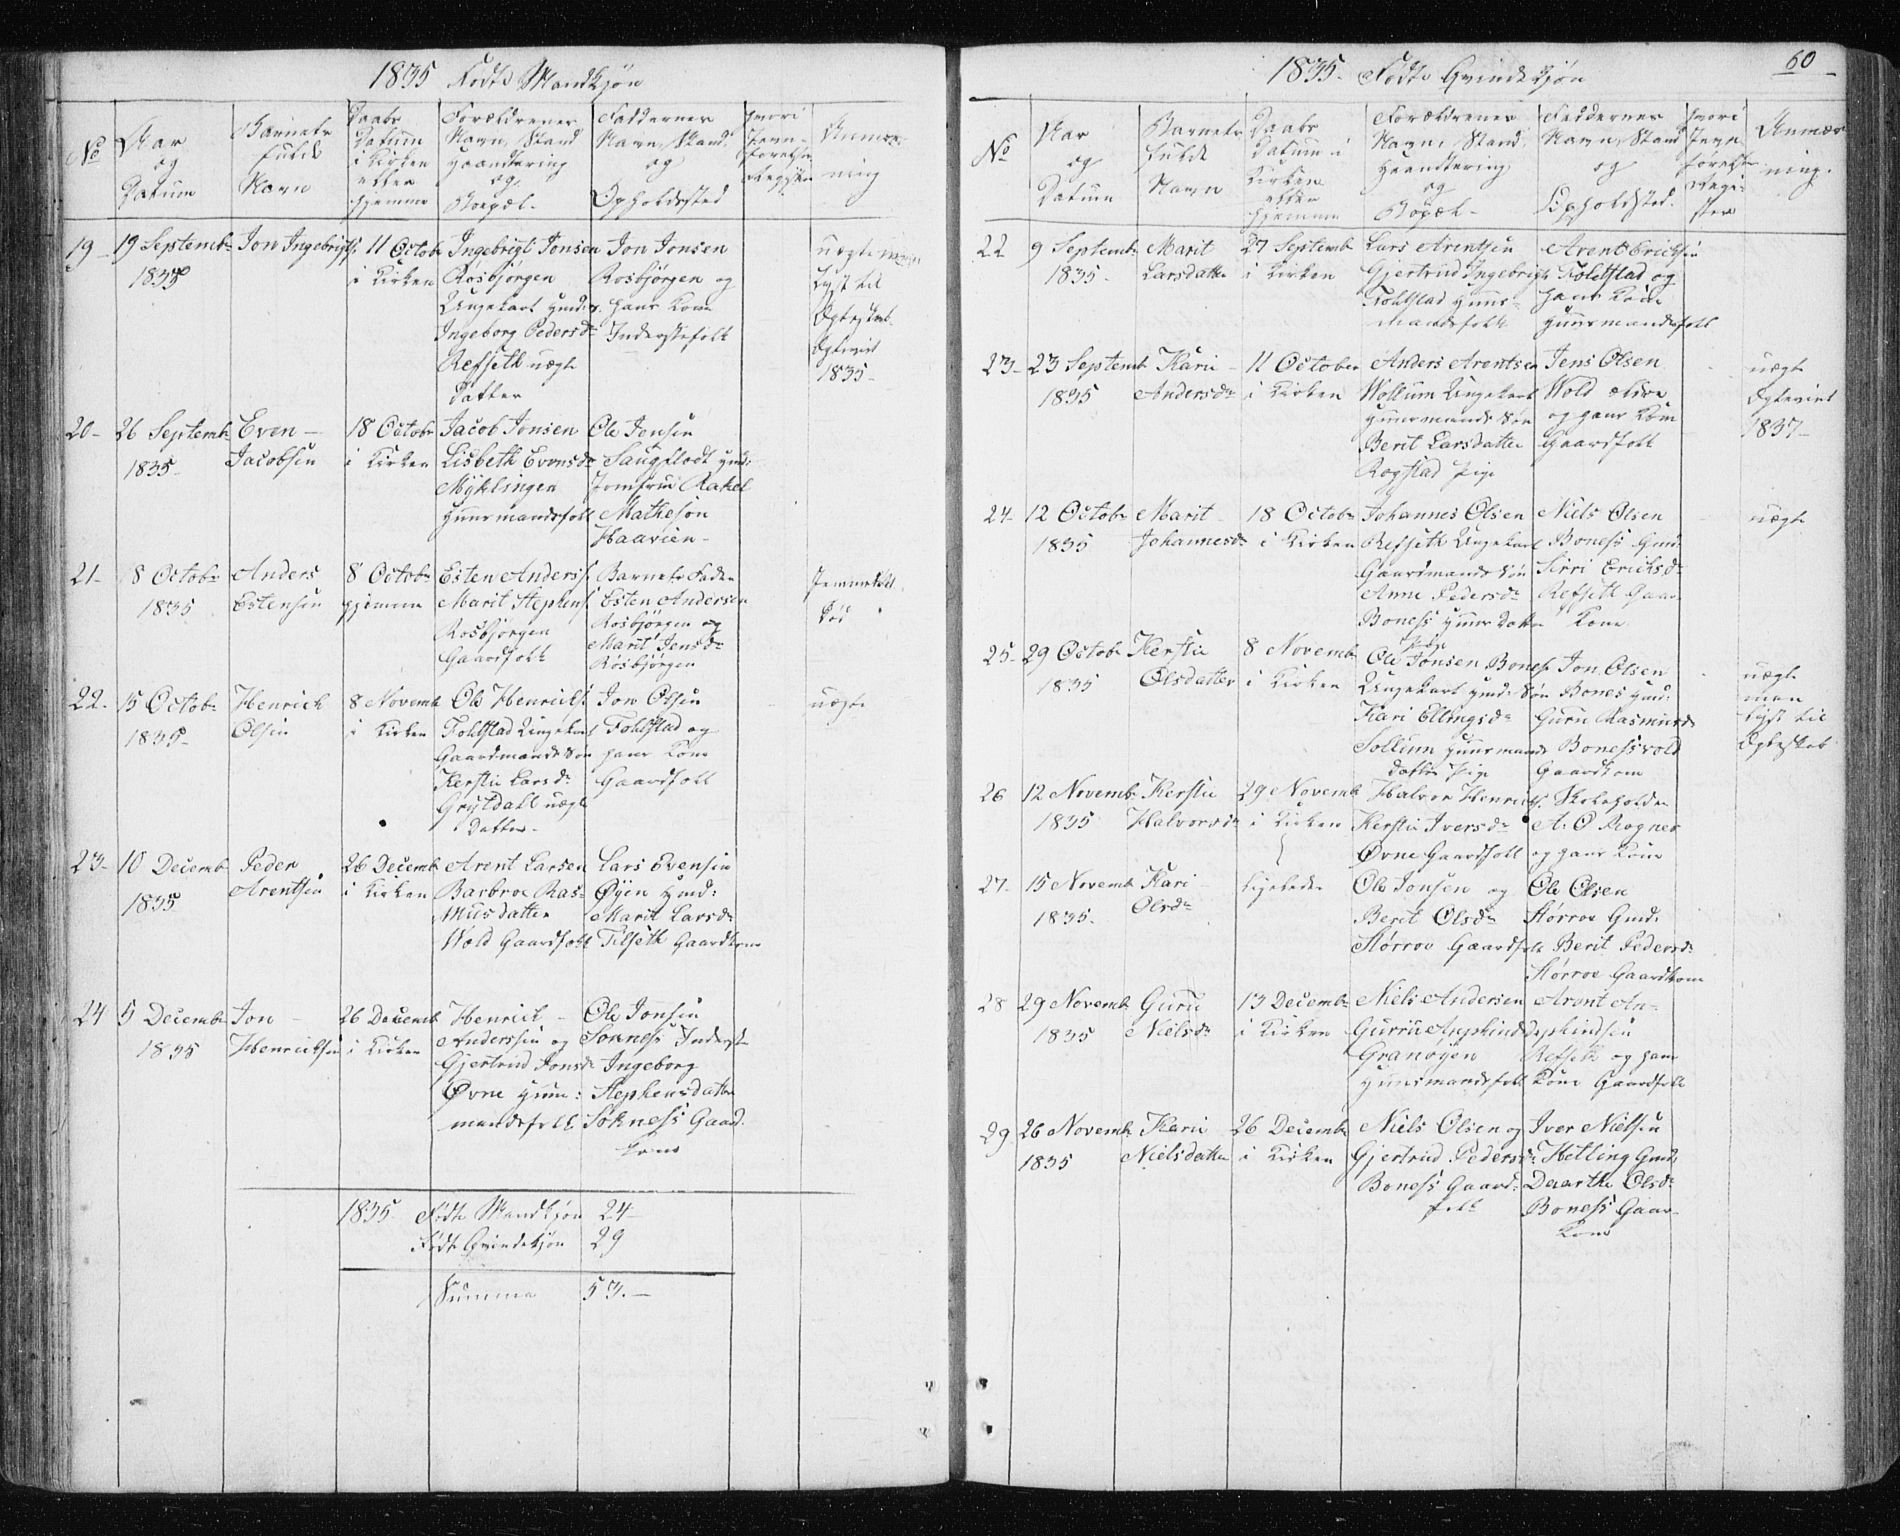 1835 Fødte Mandkjøn
No
Aar
og
Datum
Barnets
fulde
Navn
Daabs
Datum
i Kirken
eller
hjemme
Forældrenes
Navn, Stand
Haandtering
og
Boepæl.
Faddernes
Navn, Stand
og
Opholdssted
hvori
Jevn-
Anmærk-
ning
19 19 Septembr
1835
Jon Ingebrigts.
11 Octobr
i Kirken
Ingebrigt Jonsen
Rosbjørgen
Ungekarl
Ingeborg Pedersdr
Refseth uægte
datter
Jon Jonsen
Rosbjørgen og
hans Kone
Inderstefolk
lyst til
1835-
20- 26 Septembr
1835-
Even-
Jacobsen
18 Octobr
i Kirken
Jacob Jonsen
Lisbeth Evensdr
Myklingen
Huusmandsfolk
Ole Jensen
Jomfrue Rakel
Matheson
Haarien-
21- 8 Octobr
1835
Anders
Estensen
8 Octobr
hjemme
Esten Anderss.
Marit Stephens.
Rosbjørgen
Gaardfolk
Barnets Fader
Esten Andersen
Rosbjørgen og
Marit Jensdr
Rosbjørgen
død
22- 15 Octobr
1835-
Henrich
Olsen
8 Novembr
i Kirken
Ole Henrichs.
Foldstad Ungekarl
Gaardmands Søn
Kerstie Larsdr
Grytdall uægte
Datter-
Jon Olsen
Foldstad og
hans Kone
Gaardfolk
uægte
23- 10 Decembr
1835
Peder
Arentsen
26 Decembr
i Kirken
Arent Larsen
Barbroe Ras-
musdatter
Wold Gaardfolk
Lars Evensen
Øyen Gmd:
Marit Larsdr
Tilseth Gaardkone
24 5 Decembr
1835
Jon-
Henrichsen
26 Decembr
i Kirken
Henrich-
Anderssen og
Gjertrud Jonsdr
Øvne Huus:
mandsfolk
Ole Jonsen
Sokness Inderst
Ingeborg
Stephensdatter
Sokness Gaard.
kone
1835- Fødte Mandkjøn 24-
Fødte Qvindekjøn 29
Summa 53.-
60
1835- Fødte Qvindekjøn
No
Aar
og
Datum
Barnets
fulde
Navn
Daabs
Datum i
Kirken
eller
hjemme
Forældrenes
Navn, Stand,
Haandtering
og
Bopæl-
Faddernes
Navn, Stand
og
Opholdssted.
hvori
Jevn
Regi-
ster
Anmærk-
ning.
22 9 Septembr
1835-
Marit
Larsdatter
27 Septembr
i Kirken
Lars Arentsen
Gjertrud Ingebrigts.
Foldstad Huus-
mandsfolk
Arent Ericksen
Foldstad og
hans Kone
Huusmandsfolk
23- 23 Septembr
1835
Karie-
Andersdr
11 October
i Kirken
Anders Arentsen
Wollum Ungekarl
Huusmands Søn
Berit Larsdatter
Rogstad Pige
Jens Olsen
Wold ældre
og hans Kone
Gaardfolk
uægte
1837-
24- 12 Octobr
1835
Marit
Johannesdr
18 Octobr
i Kirken
Johannes Olsen
Refseth Ungekarl
Gaardmands Søn
Anne Pedersdr
Boness Huus Datter
Pige
Niels Olsen
Boness Gmd:
Sirri Ericksdr
Refseth Gaar-
Kone
uægte
25- 29 Octobr
1835
Kerstie
Olsdatter
8 Novembr
i Kirken
Ole Jonsen Boness
Ungekarl Hmd: Søn
Kari Ellingsdr
Sollium Huusmands
Datter Pige
Jon Olsen
Bones Hmd:
Guru Rasmusdr
Bonessvold
Gaardkone
uægte
men
lyst til
Ægteskab
26 12 Novembr
1835
Kerstie
Halvorsdr
29 Novembr
i Kirken
Halvor Henrichs.
Kerstie Iversdr
Øvne Gaardfolk
Skoleholder
A. O Rogner
og hans Kone
27- 15 Novembr
1835-
Kari
Olsdr
ligeledes
Ole Jonsen og
Berit Olsdr
Størroe Gaardfolk
Ole Olsen
Størroe Gmd:
Berit Pedersdr
Størroe Gaardkone
28 29 Novembr
1835
Guru
Nielsdr
13 Decembr
i Kirken
Niels Andersen
Granøyen
Huusmandsfolk
Arent An-
Refseth og hans
Kone Gaardfolk
29 26 Novembr
1835
Karie
Nielsdatter
26 Decembr
i Kirken
Niels Olsen og
Gjertrud Pedersdr
Boness Gaard:
folk
Iver Nielsen
Hetling Gmd:
Daarthe Olsdr
Boness Gaar-
Kone